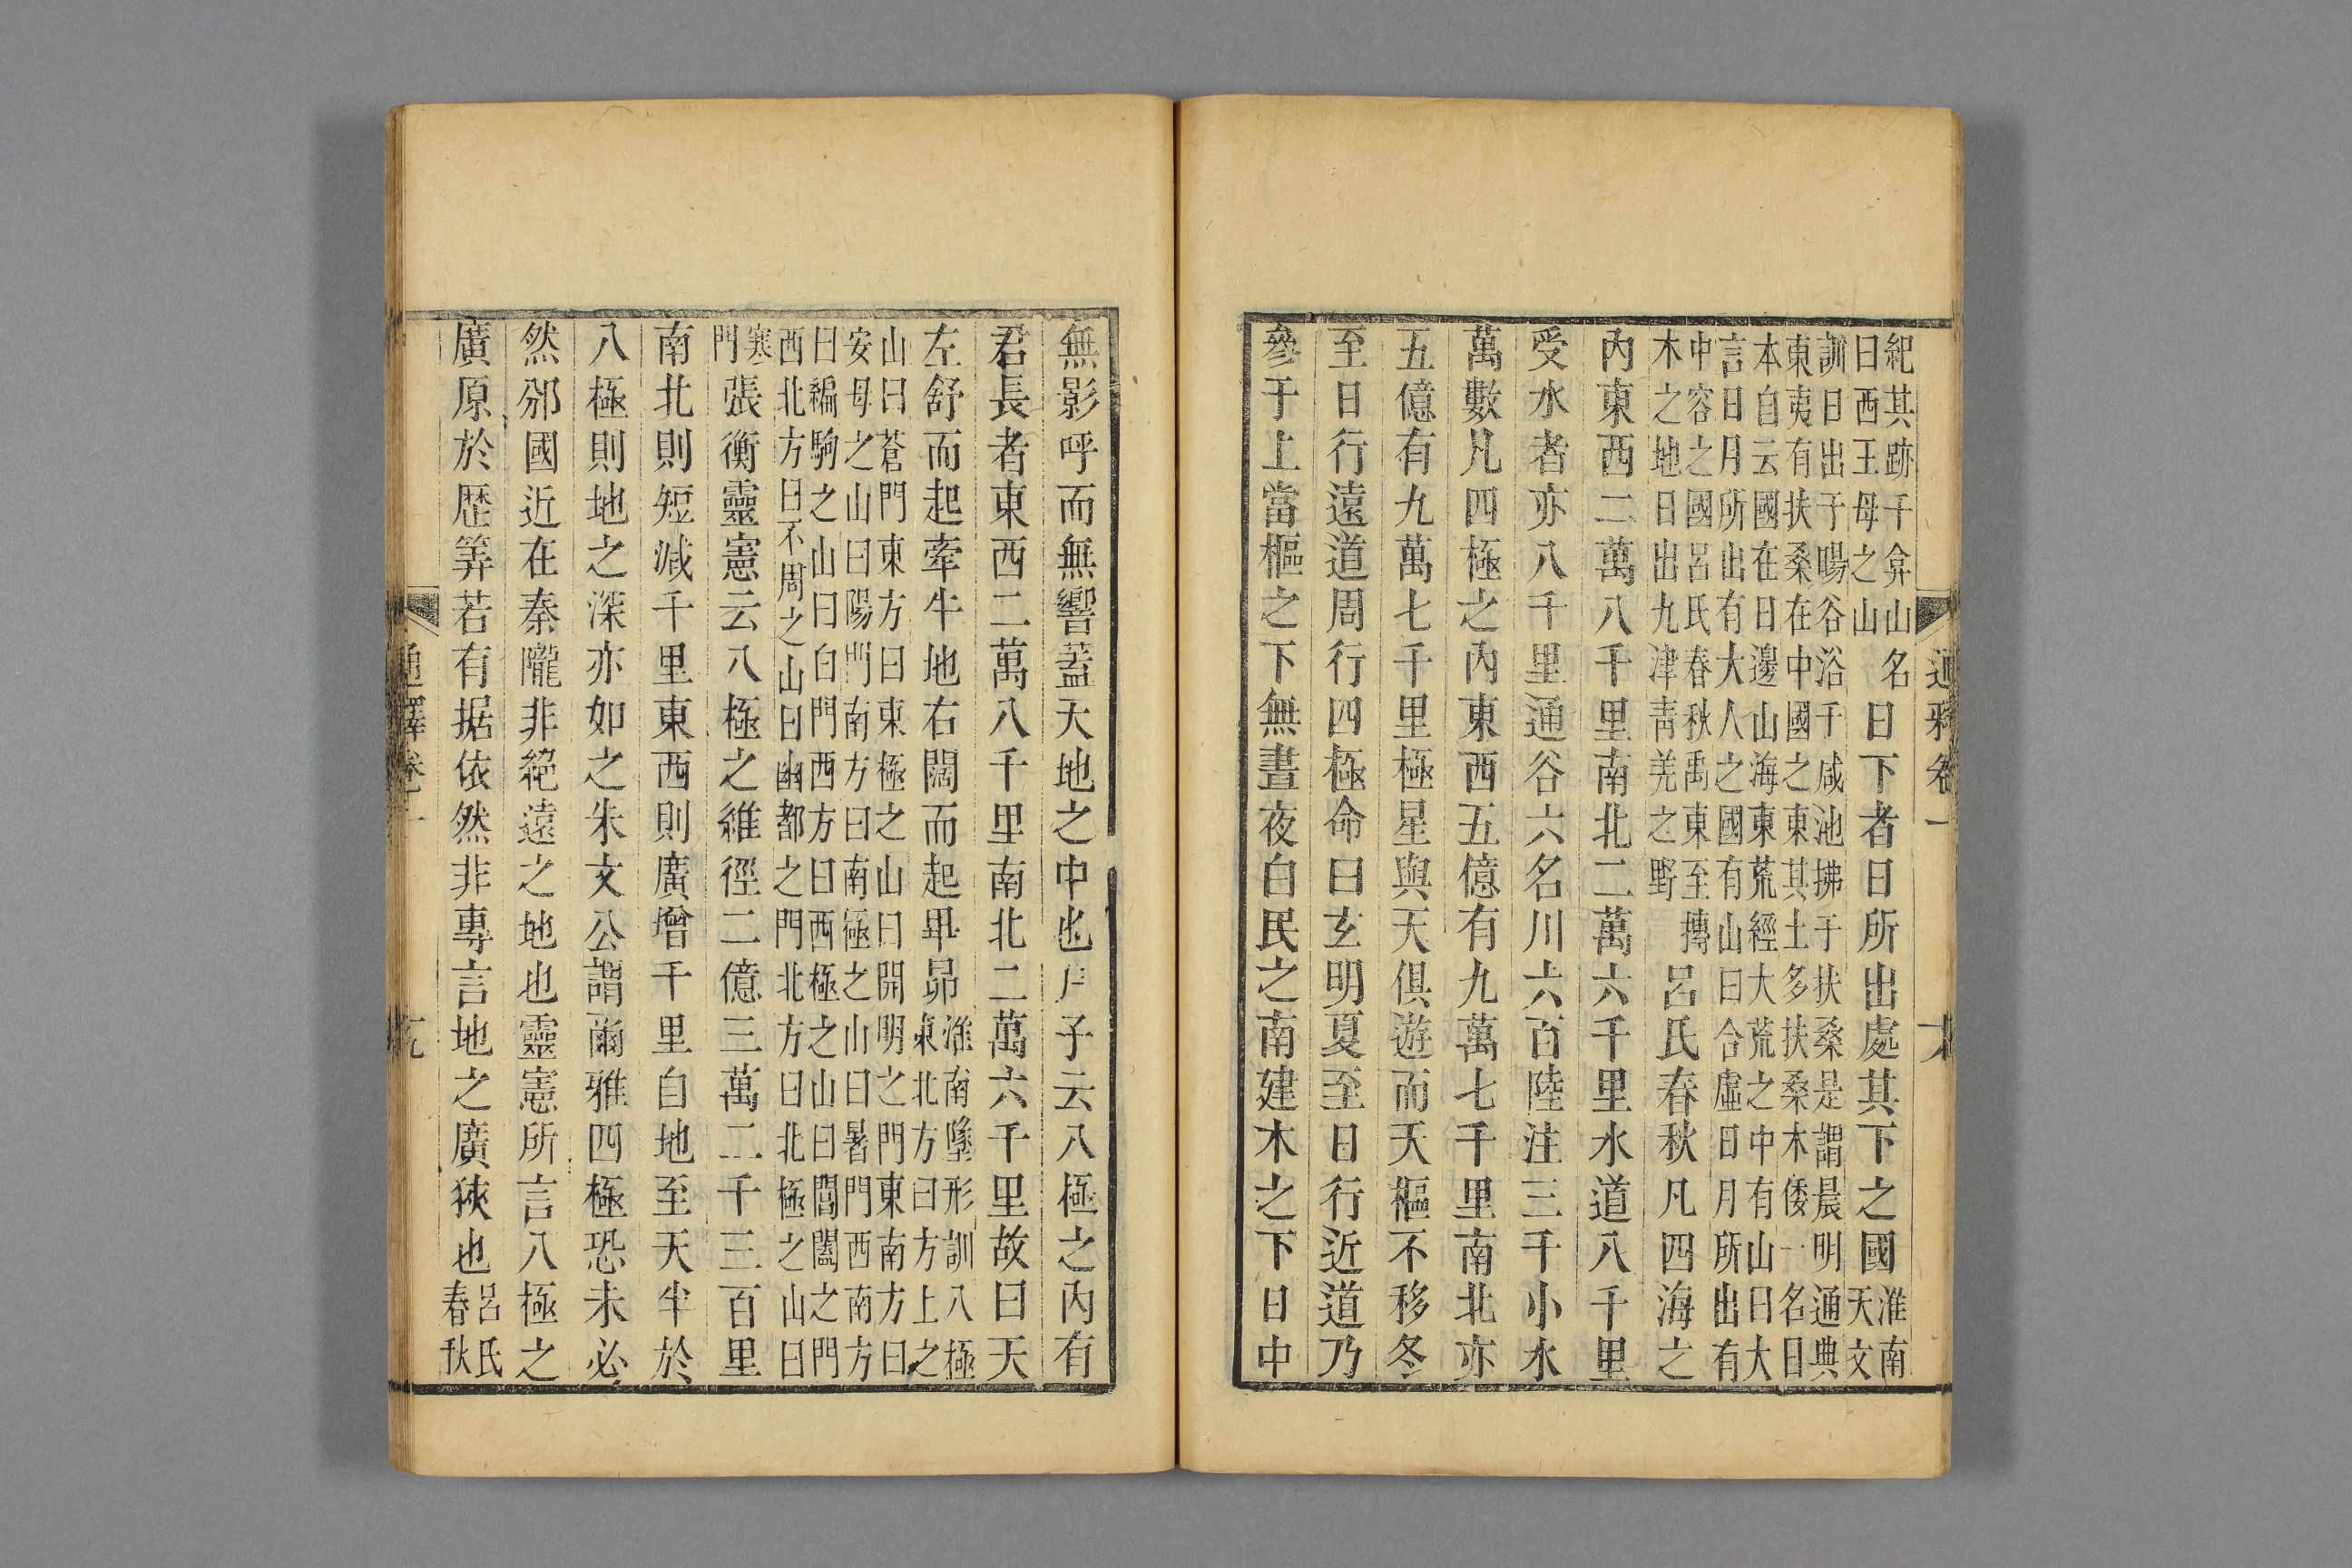 紀其跡于弇山名
曰西王母之山
日下者日所出處其下之國
淮南
天文
訓日出于暘谷浴于咸池拂于扶桑是謂晨明通典
東夷有扶桑在中國之東其土多扶桑木倭一名日
本自云國在日邊山海東荒經大荒之中有山曰大
言日月所出有大人之國有山曰合虛日月所出有
中容之國呂氏春秋禹東至摶
木之地日出九津靑羌之野
呂氏春秋凡四海之
內東西二萬八千里南北二萬六千里水道八千里
受水者亦八千里通谷六名川六百陸注三千小水
萬數凡四極之內東西五億有九萬七千里南北亦
五億有九萬七千里極星與天俱遊而天樞不移冬
至日行遠道周行四極命曰玄明夏至日行近道乃
參于上當樞之下無晝夜白民之南建木之下日中
無影呼而無響蓋天地之中也尸子云八極之內有
君長者東西二萬八千里南北二萬六千里故曰天
左舒而起牽牛地右闢而起畢昴
淮南墬形訓八極
東北方曰方上之
山曰蒼門東方曰東極之山曰開明之門東南方曰
安母之山曰陽門南方曰南極之山曰暑門西南方
曰編駒之山曰白門西方曰西極之山曰閶闔之門
西北方曰不周之山曰幽都之門北方曰北極之山曰
寒
門
張衡靈憲云八極之維徑二億三萬二千三百里
南北則短減千里東西則廣增千里自地至天半於
八極則地之深亦如之朱文公謂爾雅四極恐未必
然邠國近在秦隴非絕遠之地也靈憲所言八極之
廣原於歷筭若有据依然非專言地之廣狹也
呂氏
春秋
通雅卷一